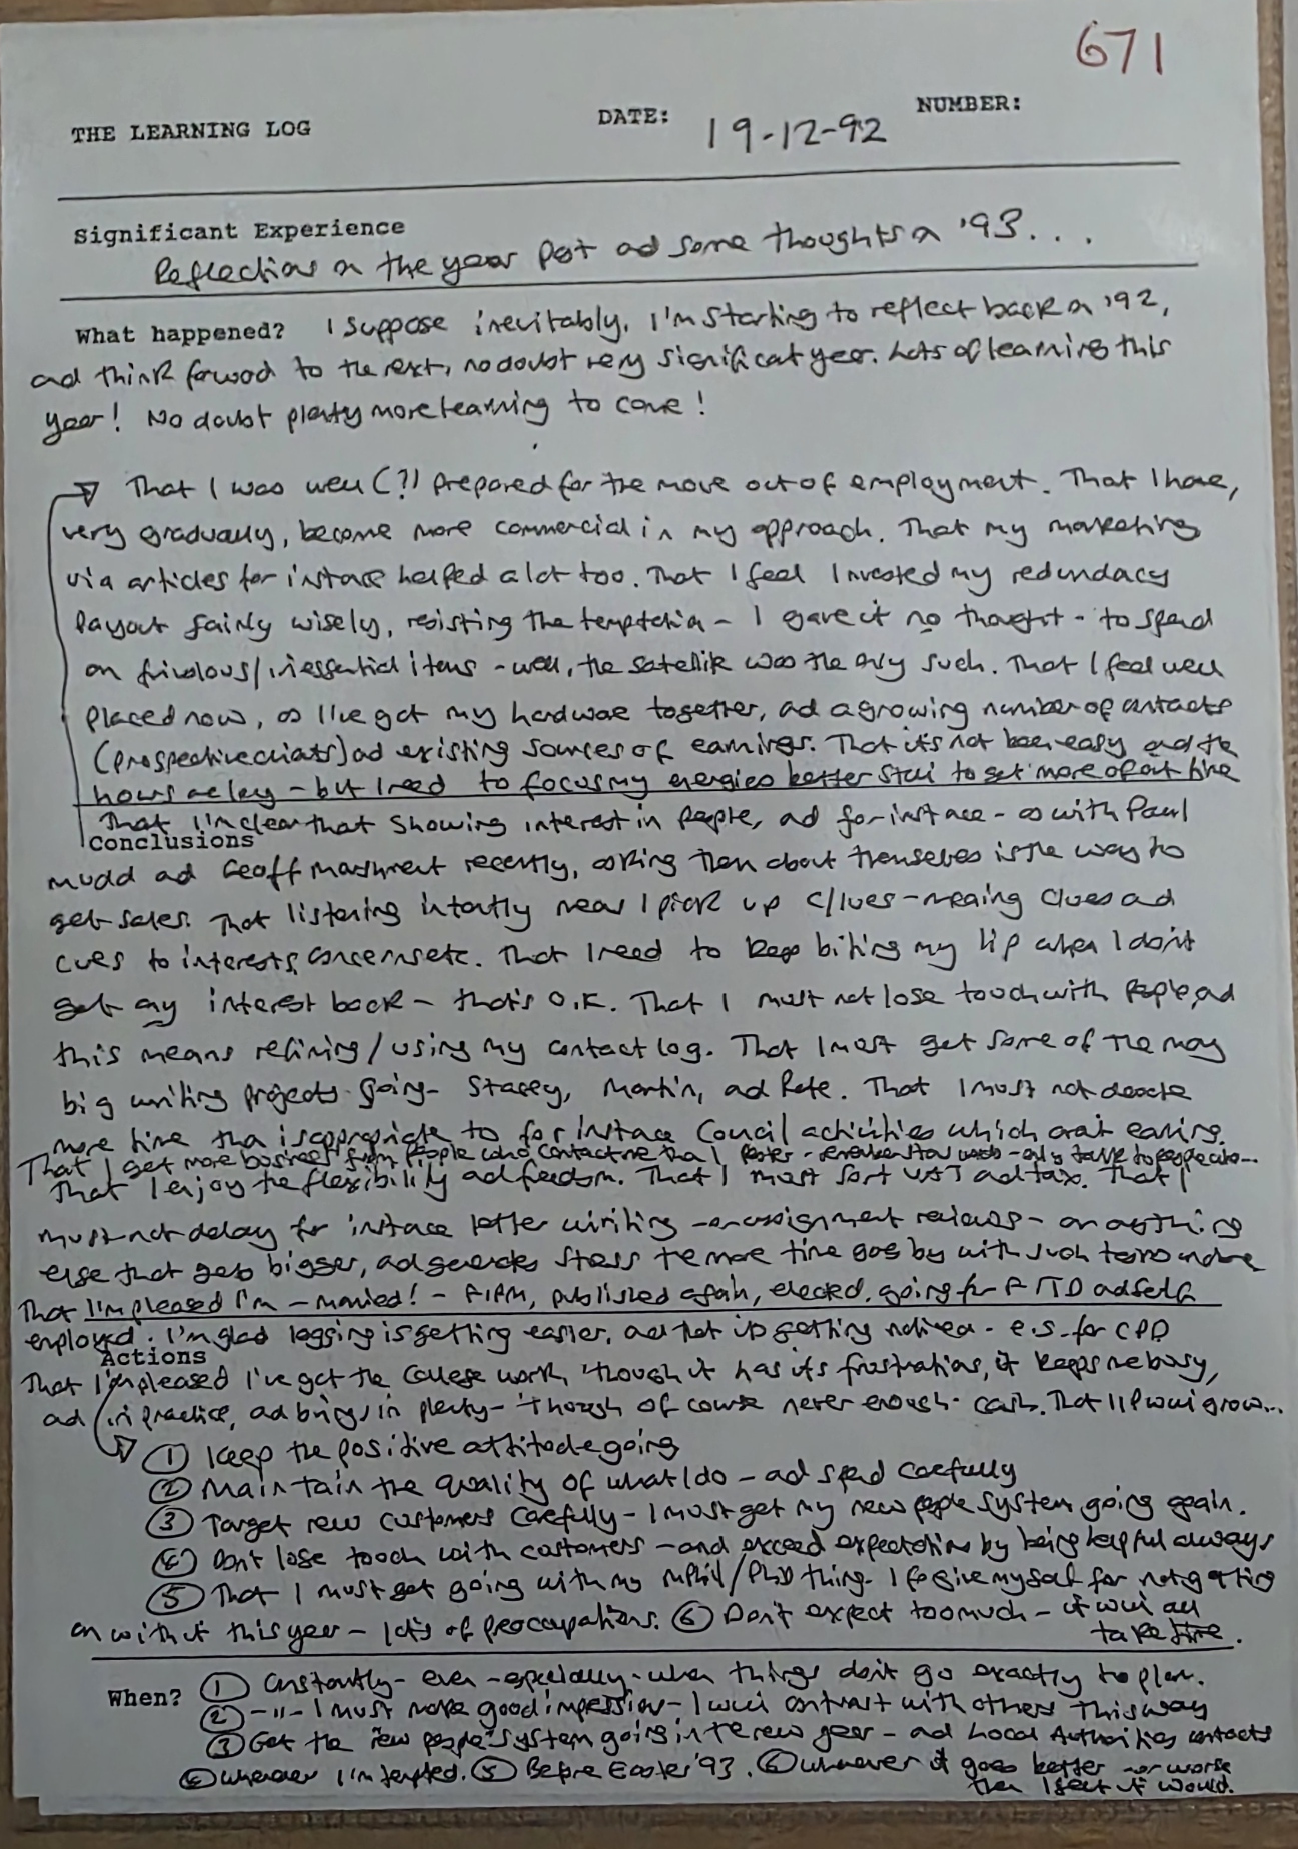 671
THE LEARNING LOG DATE: 19-12-92 NUMBER:
Significant Experience
Reflections on the year past and some thoughts on '93...
What happened? I suppose inevitably, I'm starting to reflect back on '92,
and think forward to the next, no doubt very significant year. Lots of learning this
year! No doubt plenty more learning to come!
That I was well (?) prepared for the move out of employment. That I have,
very gradually, become more commercial in my approach. That my marketing
via articles for instance helped a lot too. That I feel I invested my redundancy
payout fairly wisely, resisting the temptation - I gave it no thought - to spend
on frivolous/inessential items - well, the satellite was the only such. That I feel well
placed now, as I've got my hardware together, and a growing number of contacts
(prospective clients) and existing sources of earnings. That it's not been easy and the
hours are long - but I need to focus my energies better still to get more of out time
That I'm clear that showing interest in people, and for instance - as with Paul
Conclusions
Mudd and Geoff recently, asking them about themselves is the way to
get sales. That listening intently means I pick up c/lues - meaning clues and
cues to interests, concerns etc. That I need to keep biting my lip when I don't
get any interest back - that's O.K. That I must not lose touch with people, and
this means refining/using my contact log. That I must get some of the many
big writing projects going - Stacey, Martin, and Pete. That I must not devote
more time than is appropriate to for instance Council activities which aren't earning.
That I get more business from people who contact me than I
That I enjoy the flexibility and freedom. That I must sort VAT and tax. That I
must not delay for instance letter writing - or assignment reviews - or anything
else that gets bigger, and generates stress the more time goes by with such
That I'm pleased I'm - married! - FIPM, published again, elected, going for FITD and self-
employed. I'm glad logging is getting easier, and that it's getting noticed - e.g. for CPD
Actions
That I'm pleased I've got the College work, though it has its frustrations, it keeps me busy,
and in practice, and brings in plenty - though of course never enough - cash. That I will grow...
① Keep the positive attitude going
② Maintain the quality of what I do - and spend carefully
③ Target new customers carefully - I must get my new people system going again.
④ Don't lose touch with customers - and exceed expectations by being helpful always
⑤ That I must get going with my MPhil/PhD thing. I forgive myself for not getting
on with it this year - lots of preoccupations. ⑥ Don't expect too much - it will all
take time.
When? ① Constantly - even - especially - when things don't go exactly to plan.
② -"- I must make good impression - I will contrast with others this way
③ Get the 'new people' system going in the new year - and Local Authorities contacts
④ whenever I'm tempted. ⑤ Before Easter '93. ⑥ whenever it goes better nor worse
than I feel it would.